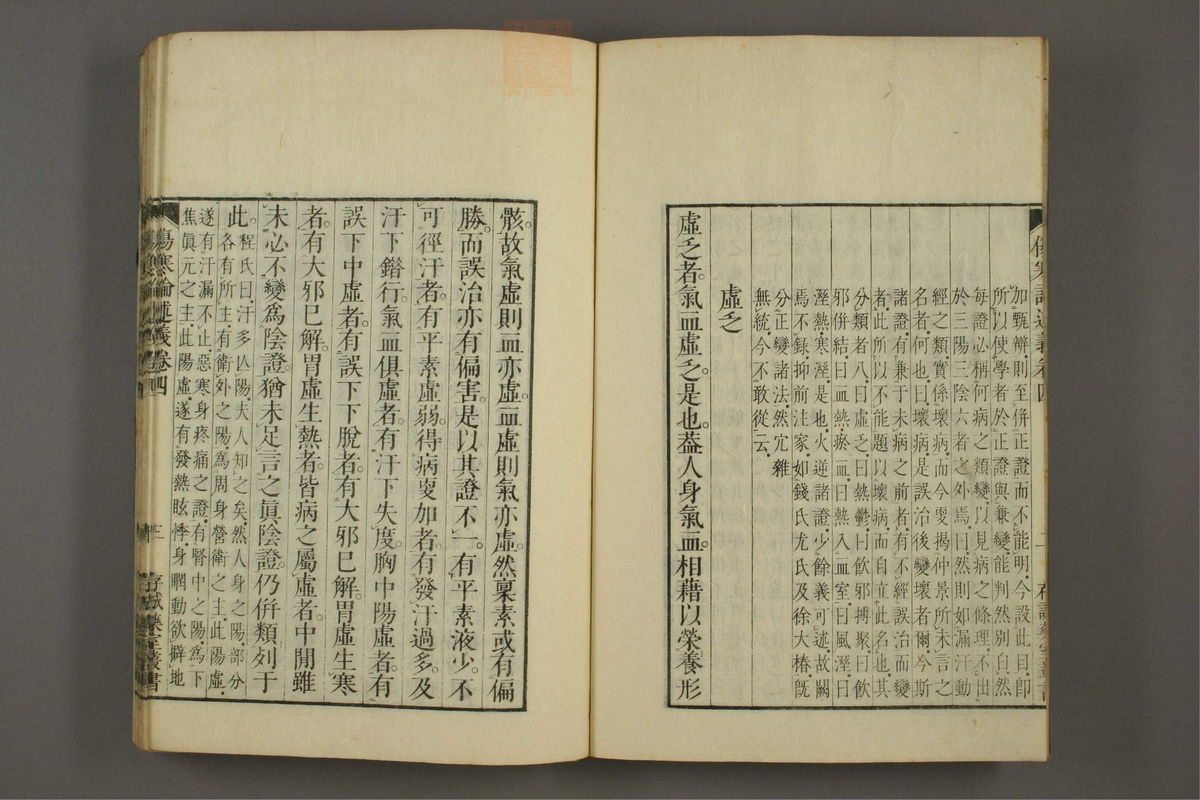 加甄辨則至併正證而不能明今設此目卽
所以使學者於正證與兼變能判然別白然
每證必稱何病之類變以見病之條理不出
於三陽三陰六者之外焉曰然則如漏汗動
經之類實係壞病而今更揭仲景所未言之
名者何也曰壞病是誤治後變壞者爾今斯
諸證有兼于未病之前者有不經誤治而變
者此所以不能題以壞病而自立此名也其
分類者八曰虛乏曰熱鬱曰飲邪搏聚曰飲
邪併結曰血熱瘀血曰熱入血室曰風溼曰
溼熱寒溼是也火逆諸證少餘義可述故闕
焉不錄抑前注家如錢氏尤氏及徐大椿旣
分正變諸法然宂雜
無統今不敢從云
虛乏
虛乏者氣血虛乏是也葢人身氣血相藉以榮養形
骸故氣虛則血亦虛血虛則氣亦虛然稟素或有偏
勝而誤治亦有偏害是以其證不一有平素液少不
可徑汗者有平素虛弱得病更加者有發汗過多及
汗下錯行氣血俱虛者有汗下失度胸中陽虛者有
誤下中虛者有誤下下脫者有大邪已解胃虛生寒
者有大邪已解胃虛生熱者皆病之屬虛者中間雖
未必不變爲陰證猶未足言之眞陰證仍併類列于
此程氏曰汗多亾陽夫人知之矣然人身之陽部分
各有所主有衛外之陽爲周身營衛之主此陽虛
遂有汗漏不止惡寒身疼痛之證有腎中之陽爲下
焦眞元之主此陽虛遂有發熱眩悸身瞤動欲擗地
傷寒論述義卷四
存誠藥室叢書